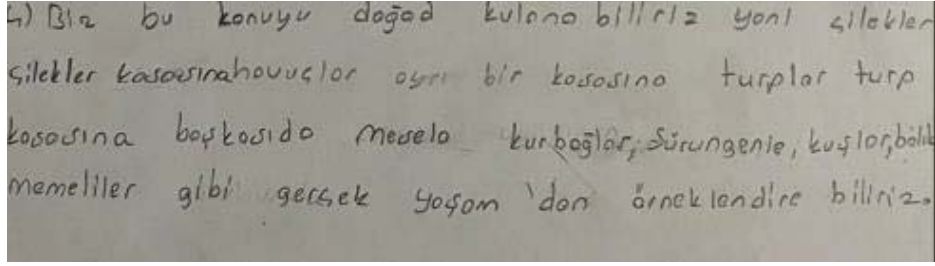 4) Biz bu konuyu doğad kulana biliriz yani çilekler
çilekler kasasınahavuçlar ayrı bir kasasına turplar turp
kasasına başkasıda mesela kurbağlar, Sürungenle, kuşlar,balık
memeliler gibi gerçek yaşam'dan örneklendire biliriz.